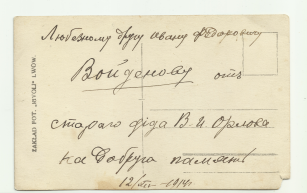 Любезному другу Ивану Федоровичу
Войденову отъ
стараго дѣда В. И. Орлока
на добрую память
12/III 1914 г.
ZAKŁAD FOT. „RIVOLI” LWÓW.